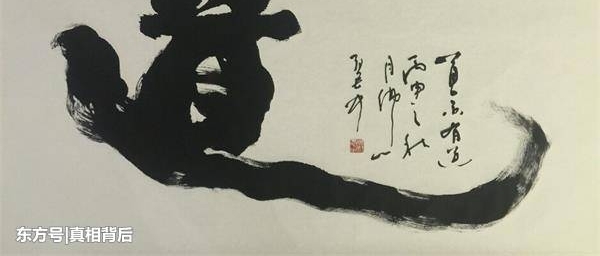 道
亦有道
丙申之秋
月佛山
东方号|真相背后